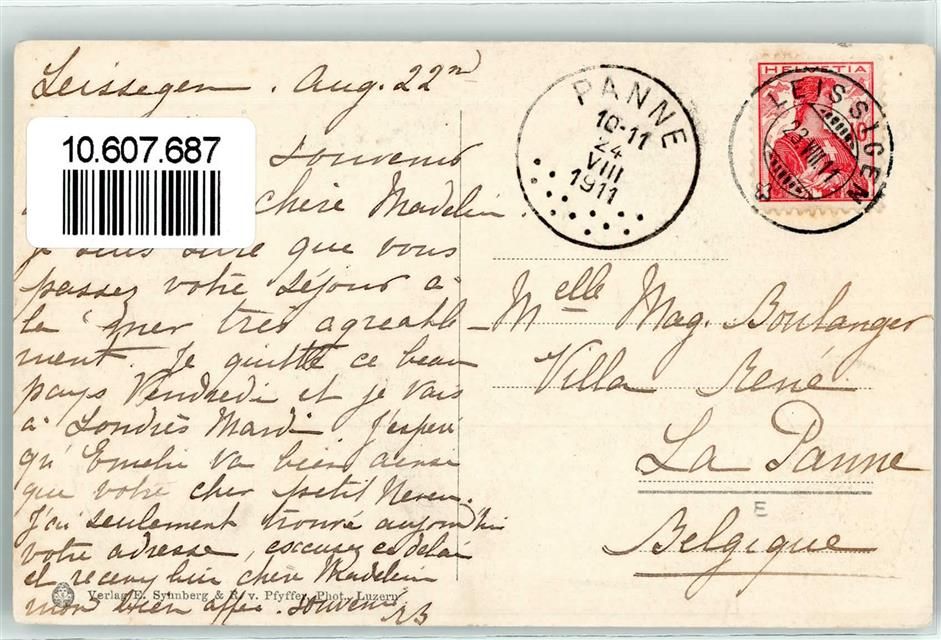 Leissegen . Aug. 22nd
10.607.687
souvenir
chère Madelein.
je suis sure que vous
passez votre séjour à
la mer tres agreable-
ment. Je quitte ce beau
pays Vendredi et je vais
à Londrès Mardi J'espèr
qu'Emelie va bien ainse
que votre cher petit Neveu.
J'ai seulement trouvé aujourd'hui
votre adresse, excusez ce délai
et recevez chère Madelein
mon bien affec. souvenir
Verlag E. Synnberg & R. v. Pfyffer, Phot., Luzern
PANNE
10-11
24
VIII
1911
HELVETIA
LEISSIGEN
22 VIII 11
Melle Mag. Boulanger
Villa René
La Panne
E
Belgique